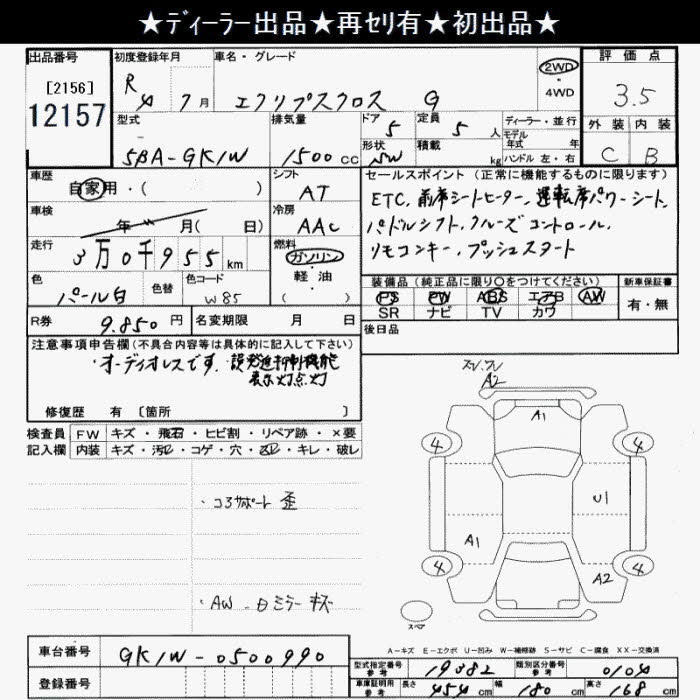 ★ディーラー出品★再セリ有★初出品★
出品番号
[2156]
12157
初度登録年月
R 4 7月
車名・グレード
エクリプスクロス G
2WD
・4WD
評価点
3.5
外装 内装
C B
型式
5BA-GK1W
排気量
1500cc
ドア 5
形状 SW
定員 5人
積載 kg
ディーラー・並行
モデル
年式 年
ハンドル 左・右
車歴
自家用・( )
シフト
AT
車検
年 月( 日)
冷房
AAC
走行
3万0千955km
燃料
ガソリン
・軽油
( )
色
パール白
色替
色コード
W85
R券
9.850円
名変期限 月 日
セールスポイント(正常に機能するものに限ります)
ETC, 前席シートヒーター, 運転席パワーシート,
パドルシフト, クルーズコントロール,
リモコンキー, プッシュスタート
装備品(純正品に限り○をつけてください)
PS PW ABS エアB AW
SR ナビ TV カワ
新車保証書
有・無
後日品
注意事項申告欄(不具合内容等は具体的に記入して下さい)
・オーディオレスです. 誤発進抑制機能
表示灯点灯
修復歴 有 [箇所 ]
検査員
記入欄
FW キズ・飛石・ヒビ割・リペア跡・×要
内装 キズ・汚レ・コゲ・穴・スレ・キレ・破レ
・コアサポート 歪
・AW - 白ミラー キズ
A2
A1
4 4
U1
A1
4 4
A2
スペア
A-キズ E-エクボ U-凹み W-補修跡 S-サビ C-腐食 XX-交換済
車台番号
GK1W-0500990
登録番号
型式指定番号
参考
19382
類別区分番号
参考
0104
車庫証明用
参考
長さ 454cm 幅 180cm 高さ 168cm